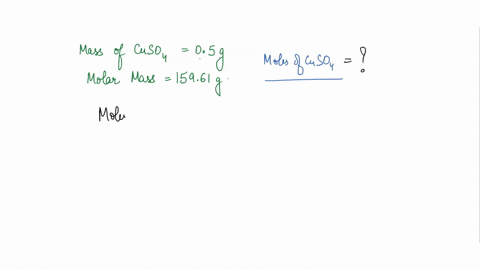 Mass of CuSO₄ = 0.5 g
Molar Mass = 159.61 g
Moles of CuSO₄ = ?
Mole